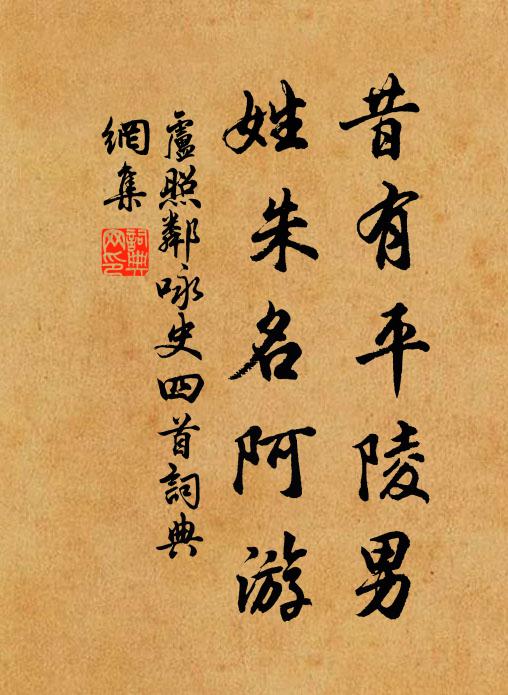 昔有平陵男
姓朱名阿游
盧照鄰咏史四首詞典
網集
詞典網印